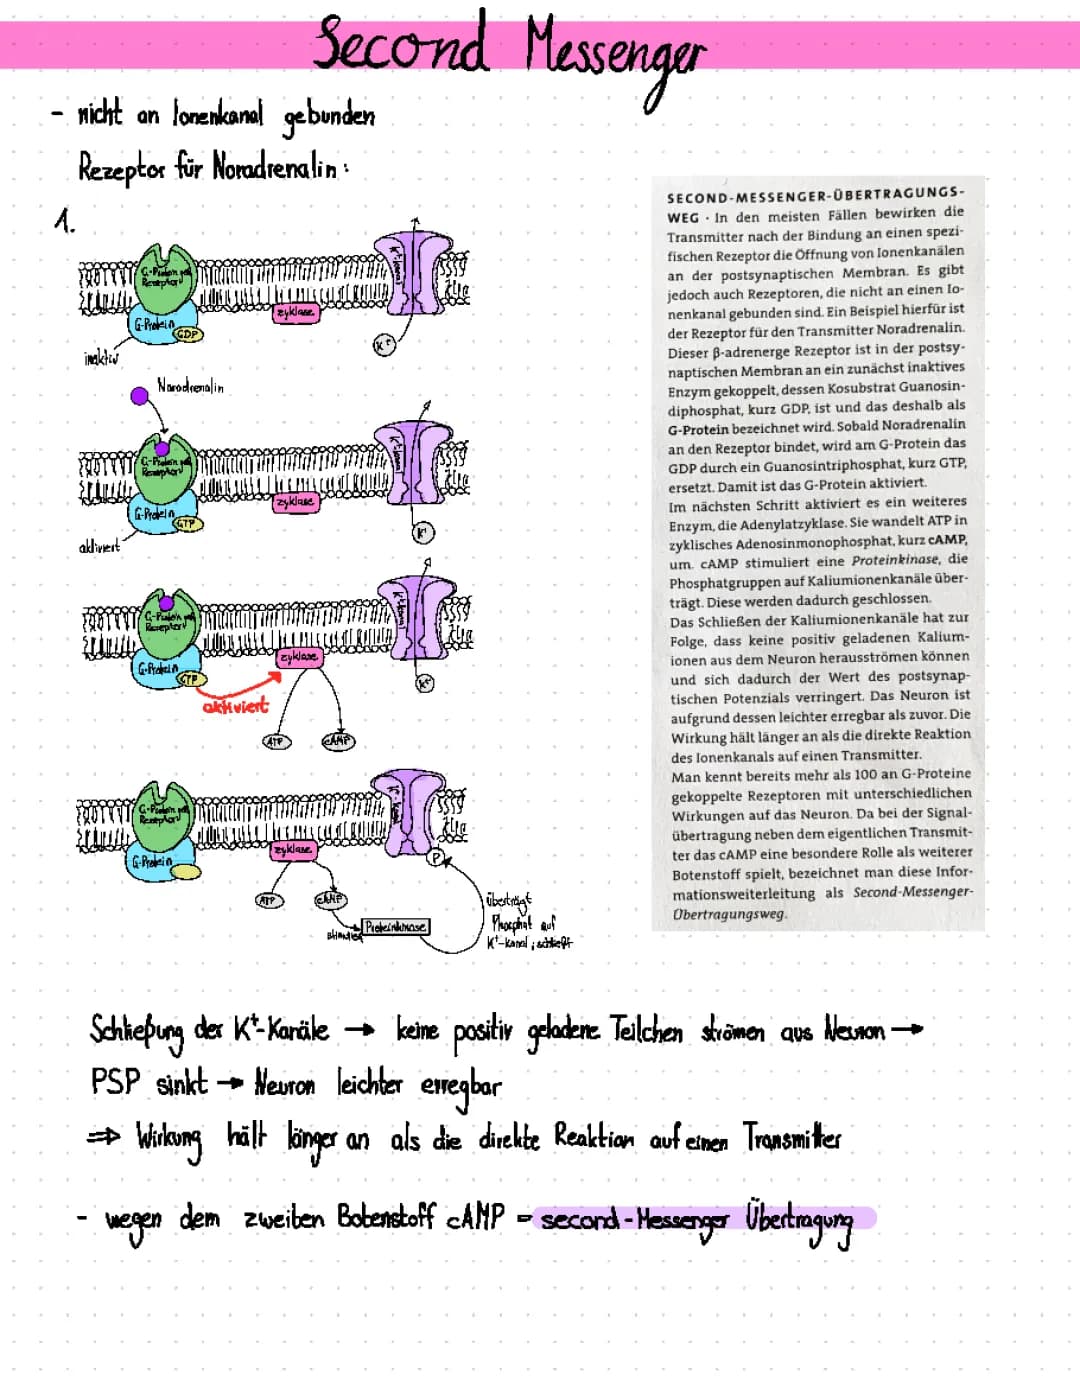 Second Messenger
- nicht an Ionenkanal gebunden
Rezeptor für Noradrenalin:
1.
G-Protein gek
Rezeptor
K⁺-Kanal
G-Protein
GDP
zyklase
K⁺
inaktiv
Noradrenalin
G-Protein gek
Rezeptor
K⁺-Kanal
G-Protein
GTP
zyklase
K⁺
aktiviert
G-Protein gek
Rezeptor
K⁺-Kanal
G-Protein
GTP
zyklase
K⁺
aktiviert
ATP
cAMP
G-Protein gek
Rezeptor
K⁺-Kanal
G-Protein
zyklase
P
ATP
cAMP
Proteinkinase
überträgt
Phosphat auf
K⁺-Kanal; schließt
SECOND-MESSENGER-ÜBERTRAGUNGS-
WEG · In den meisten Fällen bewirken die
Transmitter nach der Bindung an einen spezi-
fischen Rezeptor die Öffnung von Ionenkanälen
an der postsynaptischen Membran. Es gibt
jedoch auch Rezeptoren, die nicht an einen Io-
nenkanal gebunden sind. Ein Beispiel hierfür ist
der Rezeptor für den Transmitter Noradrenalin.
Dieser β-adrenerge Rezeptor ist in der postsy-
naptischen Membran an ein zunächst inaktives
Enzym gekoppelt, dessen Kosubstrat Guanosin-
diphosphat, kurz GDP, ist und das deshalb als
G-Protein bezeichnet wird. Sobald Noradrenalin
an den Rezeptor bindet, wird am G-Protein das
GDP durch ein Guanosintriphosphat, kurz GTP,
ersetzt. Damit ist das G-Protein aktiviert.
Im nächsten Schritt aktiviert es ein weiteres
Enzym, die Adenylatzyklase. Sie wandelt ATP in
zyklisches Adenosinmonophosphat, kurz cAMP,
um. cAMP stimuliert eine Proteinkinase, die
Phosphatgruppen auf Kaliumionenkanäle über-
trägt. Diese werden dadurch geschlossen.
Das Schließen der Kaliumionenkanäle hat zur
Folge, dass keine positiv geladenen Kalium-
ionen aus dem Neuron herausströmen können
und sich dadurch der Wert des postsynap-
tischen Potenzials verringert. Das Neuron ist
aufgrund dessen leichter erregbar als zuvor. Die
Wirkung hält länger an als die direkte Reaktion
des Ionenkanals auf einen Transmitter.
Man kennt bereits mehr als 100 an G-Proteine
gekoppelte Rezeptoren mit unterschiedlichen
Wirkungen auf das Neuron. Da bei der Signal-
übertragung neben dem eigentlichen Transmit-
ter das cAMP eine besondere Rolle als weiterer
Botenstoff spielt, bezeichnet man diese Infor-
mationsweiterleitung als Second-Messenger-
Übertragungsweg.
Schließung der K⁺-Kanäle → keine positiv geladene Teilchen strömen aus Neuron →
PSP sinkt → Neuron leichter erregbar
⇒ Wirkung hält länger an als die direkte Reaktion auf einen Transmitter
- wegen dem zweiten Botenstoff cAMP = second-Messenger Übertragung